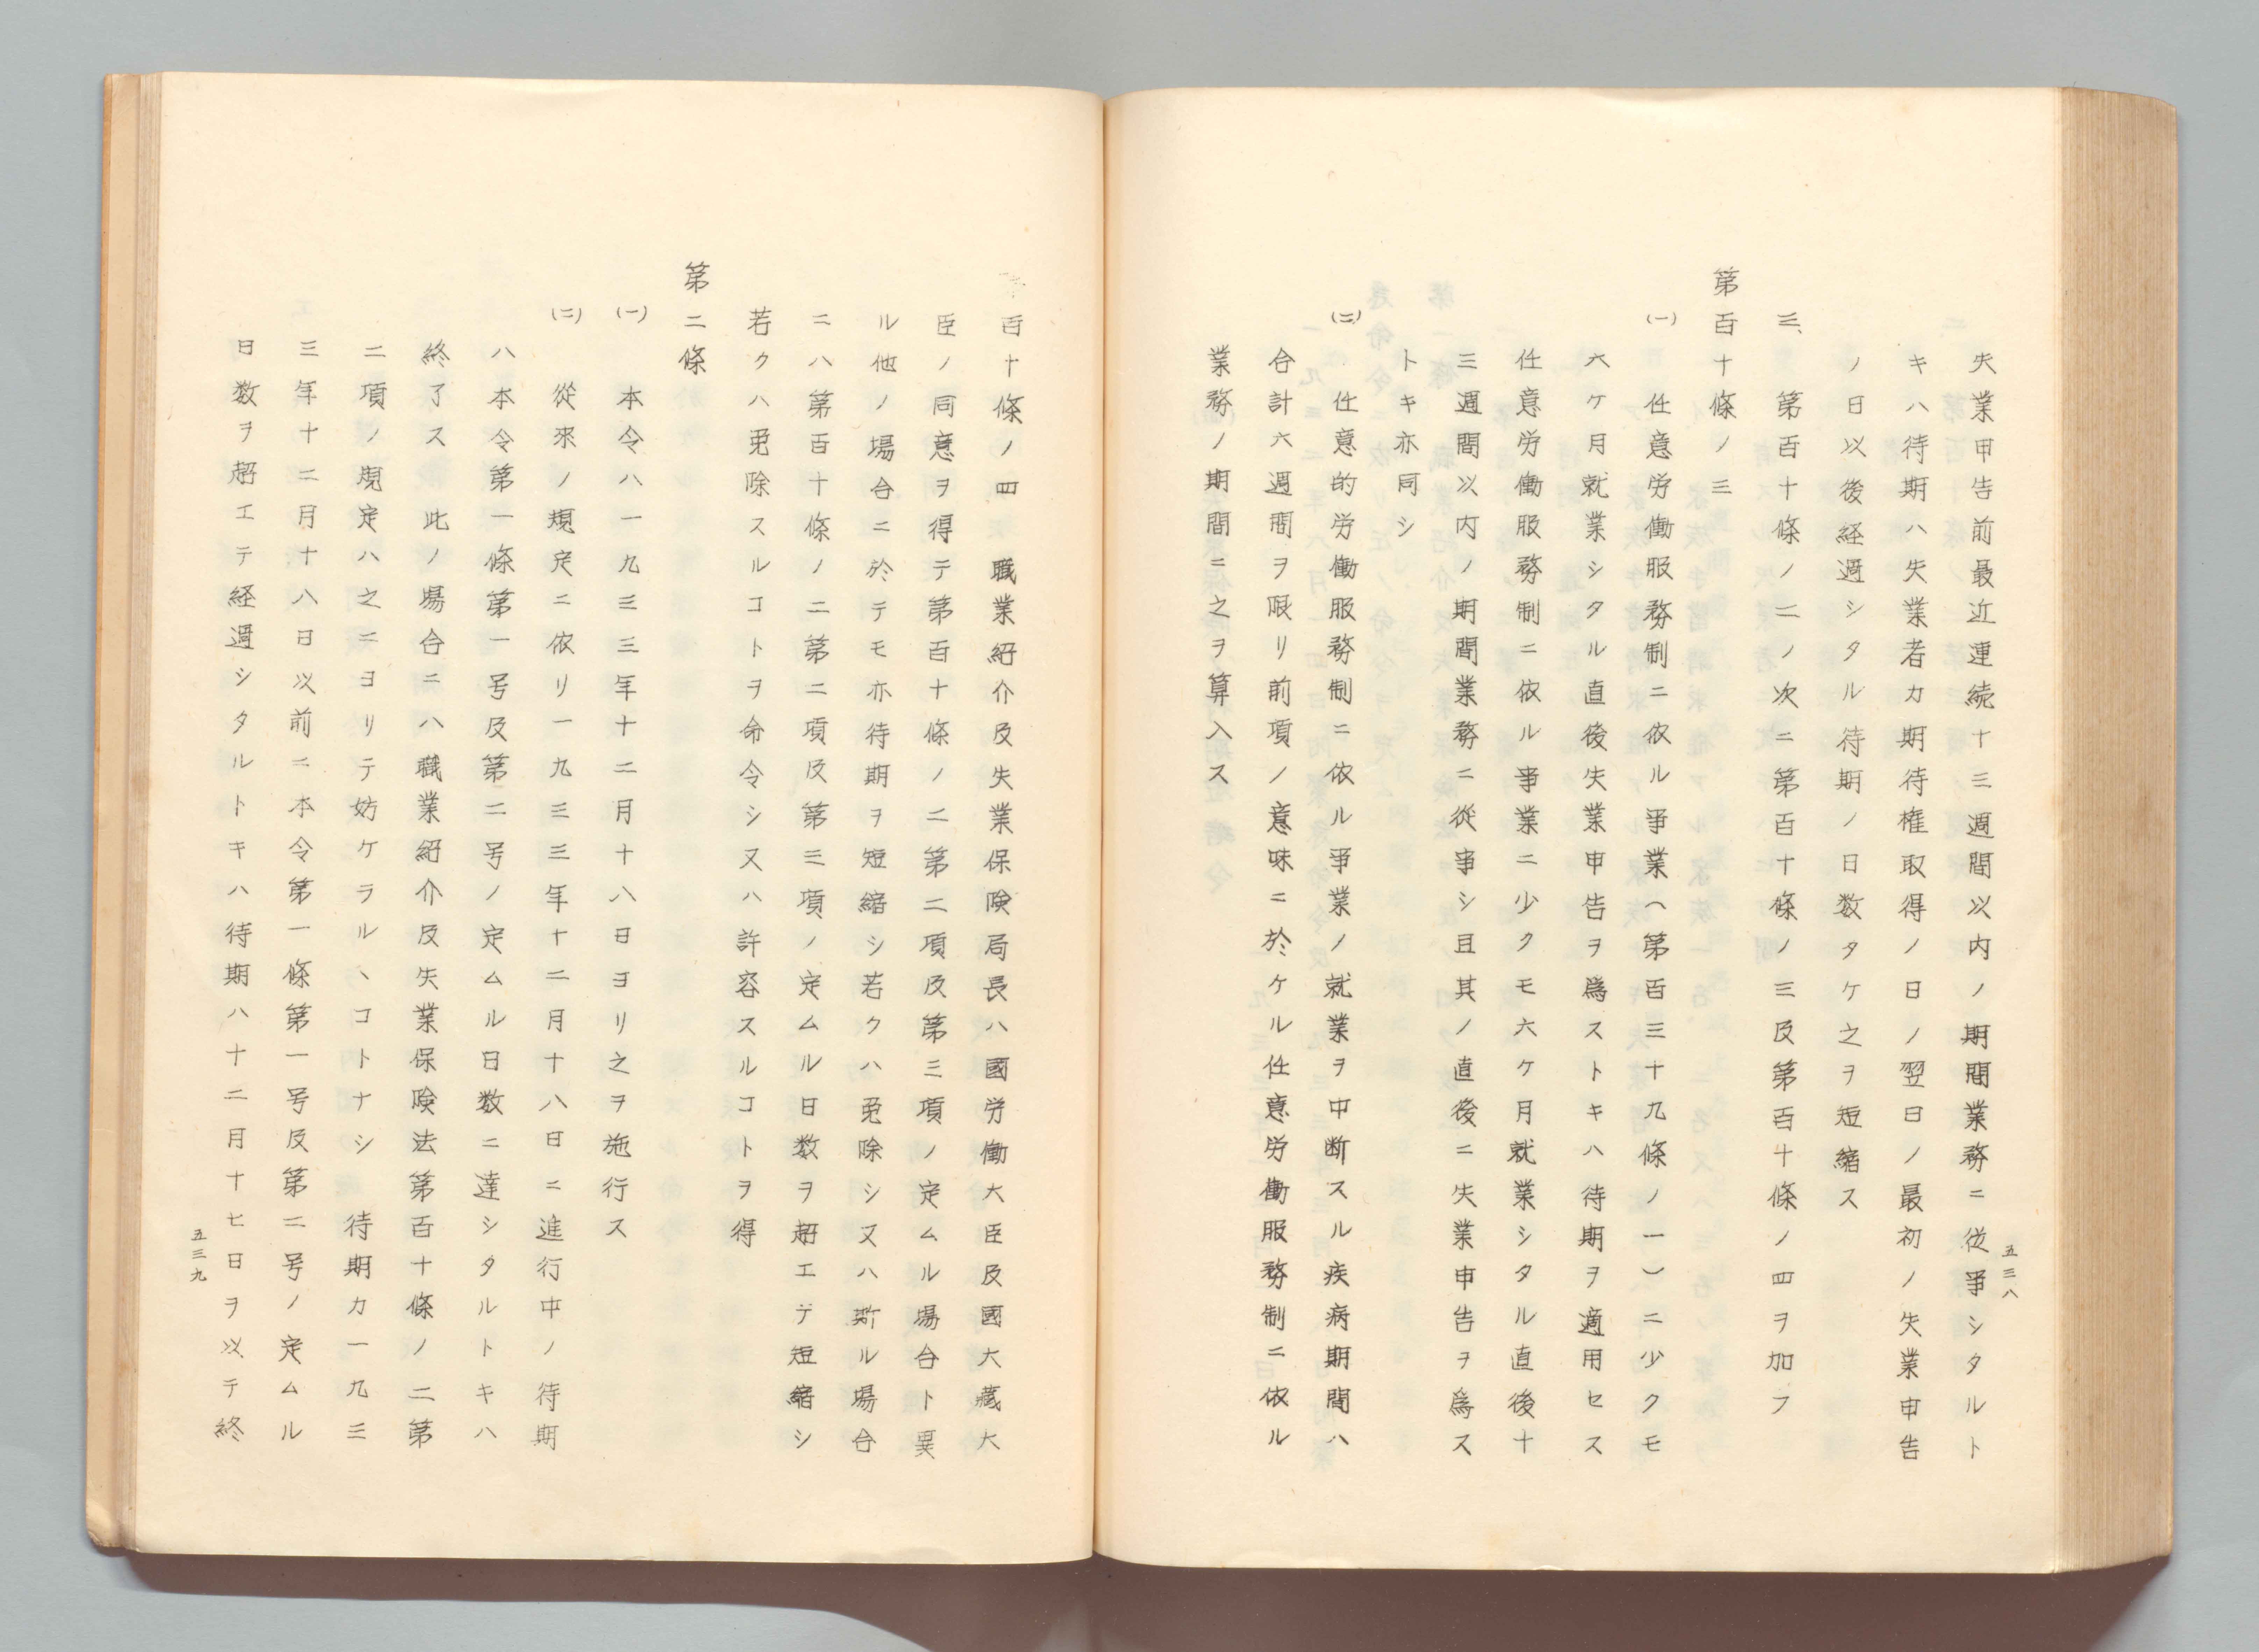 五三八
失業申告前最近連続十三週間以内ノ期間業務ニ從事シタルト
キハ待期ハ失業者カ期待権取得ノ日ノ翌日ノ最初ノ失業申告
ノ日以後経過シタル待期ノ日数タケ之ヲ短縮ス
三、第百十條ノ二ノ次ニ第百十條ノ三及第百十條ノ四ヲ加フ
第百十條ノ三
(一) 任意労働服務制ニ依ル事業(第百三十九條ノ一)ニ少クモ
六ケ月就業シタル直後失業申告ヲ為ストキハ待期ヲ適用セス
任意労働服務制ニ依ル事業ニ少クモ六ケ月就業シタル直後十
三週間以内ノ期間業務ニ從事シ且其ノ直後ニ失業申告ヲ為ス
トキ亦同シ
(二) 任意的労働服務制ニ依ル事業ノ就業ヲ中断スル疾病期間ハ
合計六週間ヲ限リ前項ノ意味ニ於ケル任意労働服務制ニ依ル
業務ノ期間ニ之ヲ算入ス
百十條ノ四 職業紹介及失業保険局長ハ國労働大臣及國大藏大
臣ノ同意ヲ得テ第百十條ノ二第二項及第三項ノ定ムル場合ト異
ル他ノ場合ニ於テモ亦待期ヲ短縮シ若クハ免除シ又ハ斯ル場合
ニハ第百十條ノ二第二項及第三項ノ定ムル日数ヲ超エテ短縮シ
若クハ免除スルコトヲ命令シ又ハ許容スルコトヲ得
第二條
(一) 本令ハ一九三三年十二月十八日ヨリ之ヲ施行ス
(二) 從來ノ規定ニ依リ一九三三年十二月十八日ニ進行中ノ待期
ハ本令第一條第一号及第二号ノ定ムル日数ニ達シタルトキハ
終了ス 此ノ場合ニハ職業紹介及失業保険法第百十條ノ二第
二項ノ規定ハ之ニヨリテ妨ケラルヽコトナシ 待期カ一九三
三年十二月十八日以前ニ本令第一條第一号及第二号ノ定ムル
日数ヲ超エテ経過シタルトキハ待期ハ十二月十七日ヲ以テ終
五三九